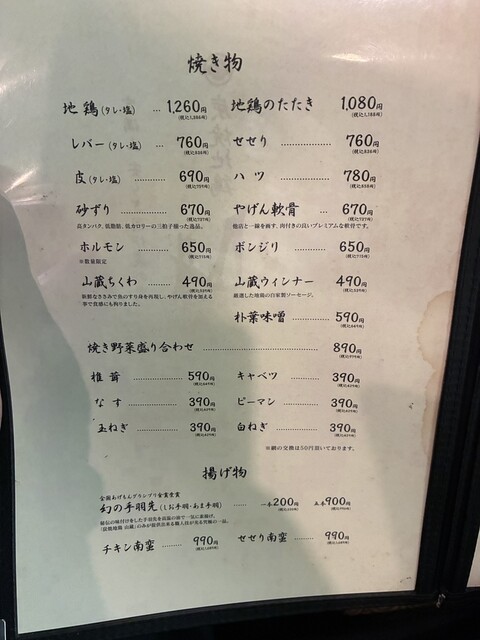 焼き物
地鶏(タレ・塩) … 1,260円
(税込1,386円)
地鶏のたたき 1,080円
(税込1,188円)
レバー(タレ・塩) … 760円
(税込836円)
せせり 760円
(税込836円)
皮(タレ・塩) 690円
(税込759円)
ハツ 780円
(税込858円)
砂ずり 670円
(税込737円)
高タンパク、低脂肪、低カロリーの三拍子揃った逸品。
やげん軟骨 … 670円
(税込737円)
他店と一線を画す、肉付きの良いプレミアムな軟骨です。
ホルモン 650円
(税込715円)
※数量限定
ボンジリ 650円
(税込715円)
山蔵ちくわ 490円
(税込539円)
新鮮なささみで魚のすり身を再現し、やげん軟骨を加える
事で食感にも拘りました。
山蔵ウィンナー 490円
(税込539円)
厳選した地鶏の自家製ソーセージ。
朴葉味噌 590円
(税込649円)
焼き野菜盛り合わせ 890円
(税込979円)
椎茸 590円
(税込649円)
キャベツ 390円
(税込429円)
なす 390円
(税込429円)
ピーマン 390円
(税込429円)
玉ねぎ 390円
(税込429円)
白ねぎ 390円
(税込429円)
※網の交換は50円頂いております。
揚げ物
全国あげもんグランプリ金賞受賞
幻の手羽先(しお手羽・あま手羽) 一本200円 五本900円
(税込220円) (税込990円)
チキン南蛮 990円
(税込1,089円)
せせり南蛮 990円
(税込1,089円)